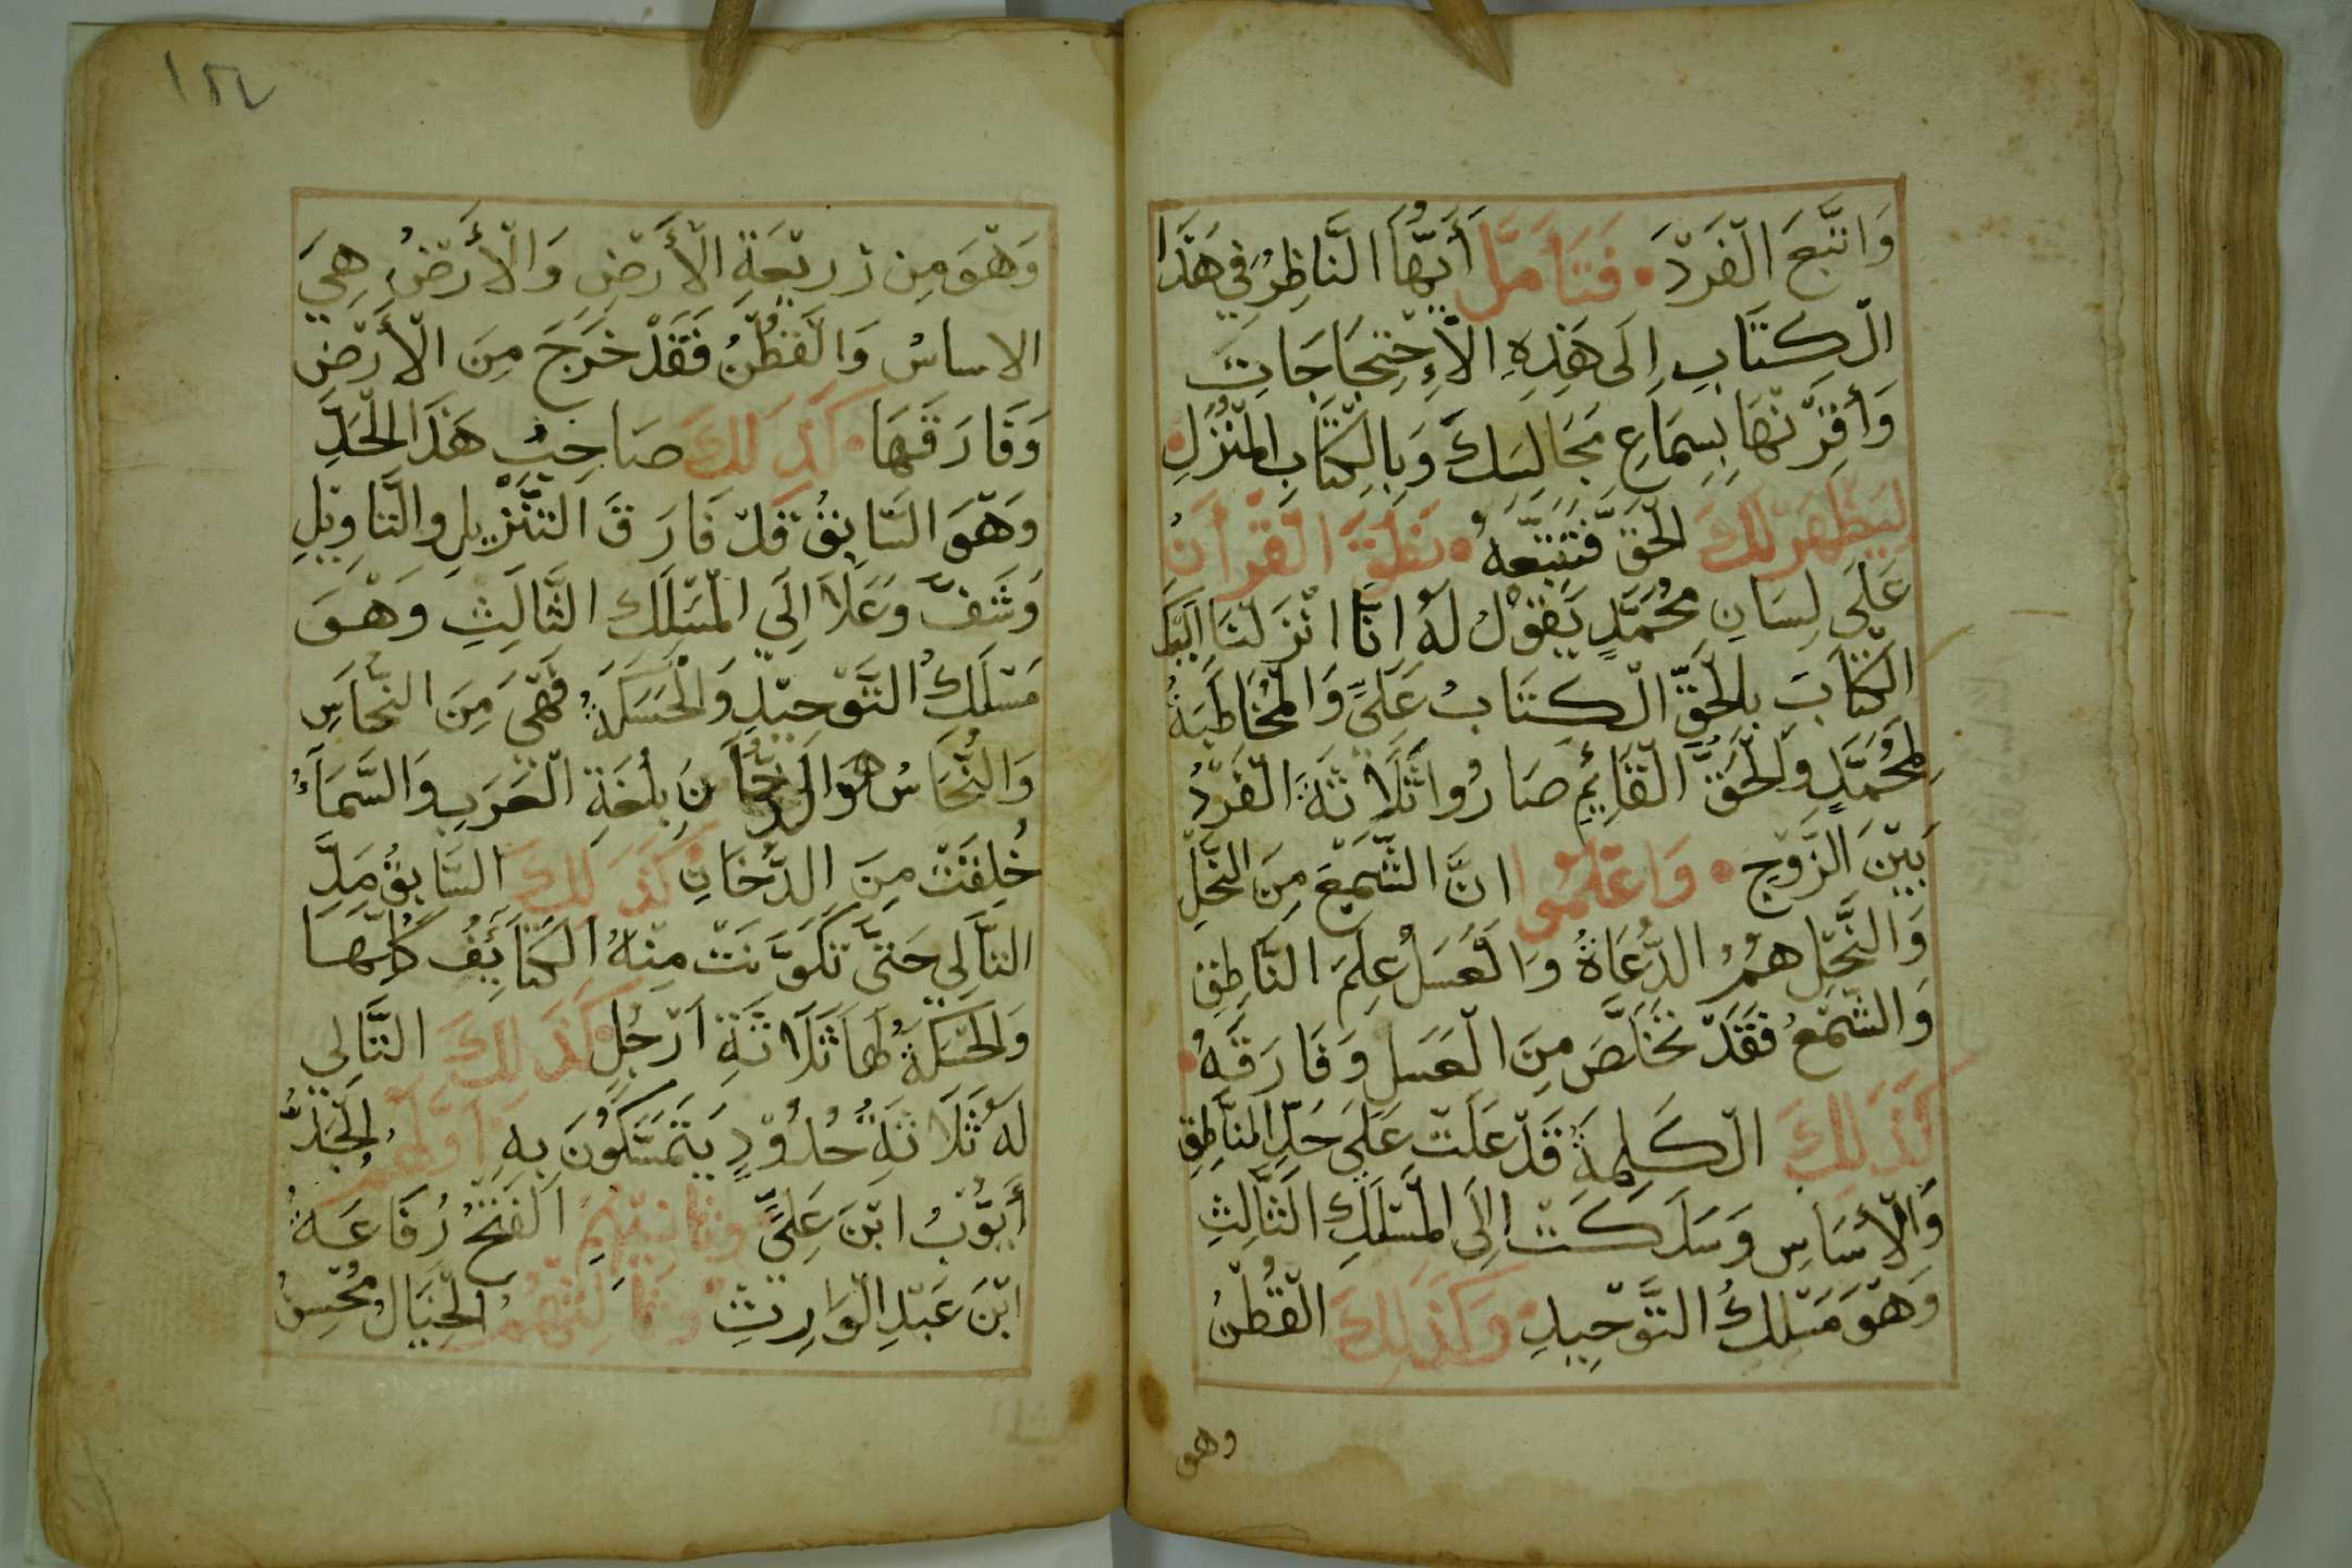 وَاتَّبَعَ الْفَرْدَ • فَتَأَمَّلْ أَيُّهَا النَّاظِرُ فِي هَذَا
الْكِتَابِ إِلَى هَذِهِ الْأِحْتِجَاجَاتِ
وَأَقِرَّنَهَا بِسِمَاعِ مَجَالِسَكَ وَبِالْكِتَابِ الْمُنْزَلِ •
لِيَظْهَرَ لَكَ الْحَقَّ فَتَتَّبِعَهُ • نَطَقَ الْقُرْآنُ
عَلَى لِسَانِ مُحَمَّدٍ يَقُوْلُ لَهُ انَّا انْزَلْنَا الَيْكَ
الْكِتَابَ بِالْحَقِّ الْكِتَابُ عَلِيٌّ وَالْمُخَاطَبَةُ
لِمُحَمَّدٍ وَالْحَقُّ الْقَائِمُ صَارُوا ثَلَاثَةَ الْفَرْدُ
بَيْنَ الزَّوْجِ • وَاعْلَمُوا انَّ الشَّمْعَ مِنَ النَّحْلِ
وَالنَّحْلِ هُمُ الدُّعَاةُ وَالْعَسَلُ عِلْمَ النَّاطِقِ
وَالشَّمْعُ فَقَدْ تَخَلَّصَ مِنَ الْعَسَلِ وَفَارَقَهُ •
كَذَلِكَ الْكَلِمَةُ قَدْ عَلَتْ عَلَى حَدِّ النَّاطِقِ
وَالْأَسَاسِ وَسَلَكَتْ إِلَى الْمَسْلَكِ الثَّالِثِ
وَهْوَ مَسْلَكُ التَّوْحِيدِ • وَكَذَلِكَ الْقُطْنُ
وهو
١٤٧
وَهْوَ مِن زَرِيْعَةِ الْأَرْضِ وَالْأَرْضُ هِيَ
الاساسُ وَالْقُطْنُ فَقَدْ خَرَجَ مِنَ الْأَرْضِ
وَفَارَقَهَا • كَذَلِكَ صَاحِبُ هَذَا الْحَدِّ
وَهْوَ السَّابِقُ قَدْ فَارَقَ التَّنْزِيلِ وَالتَّاوِيلِ
وَشَفَّ وَعَلَا الَى الْمَسْلَكِ الثَّالِثِ وَهْوَ
مَسْلَكُ التَّوْحِيْدِ وَالْحَسَكَةُ فَهْيَ مِنَ النُّحَاسِ
وَالنُّحَاسُ هُوَ الدُّخَانَ بِلُغَةِ الْعَرَبِ وَالسَّمَاءُ
خُلِقَتْ مِنَ الدُّخَانِ كَذَلِكَ السَّابِقُ مَدَّ
التَّالِي حَتَّى تَكَوَّنَتْ مِنْهُ الْكَتَائِفُ كُلُّهَا
وَالْحَسَكَةُ لَهَا ثَلَاثَةِ ارْجُلٍ كَذَلِكَ التَّالِي
لَهُ ثَلَاثَةُ حُدُوْدٍ يَتَمَسَّكُونَ بِهِ • أَوَّلُهُمُ الْجَدُّ
أَيُّوْبُ ابْنَ عَلِيٍّ وَثَانِيْهِمُ الْفَتْحُ رِفَاعَةُ
ابْنَ عَبْدِ الْوَارِثِ وَثَالِثُهُمُ الْخَيَالُ مُحْسِنُ